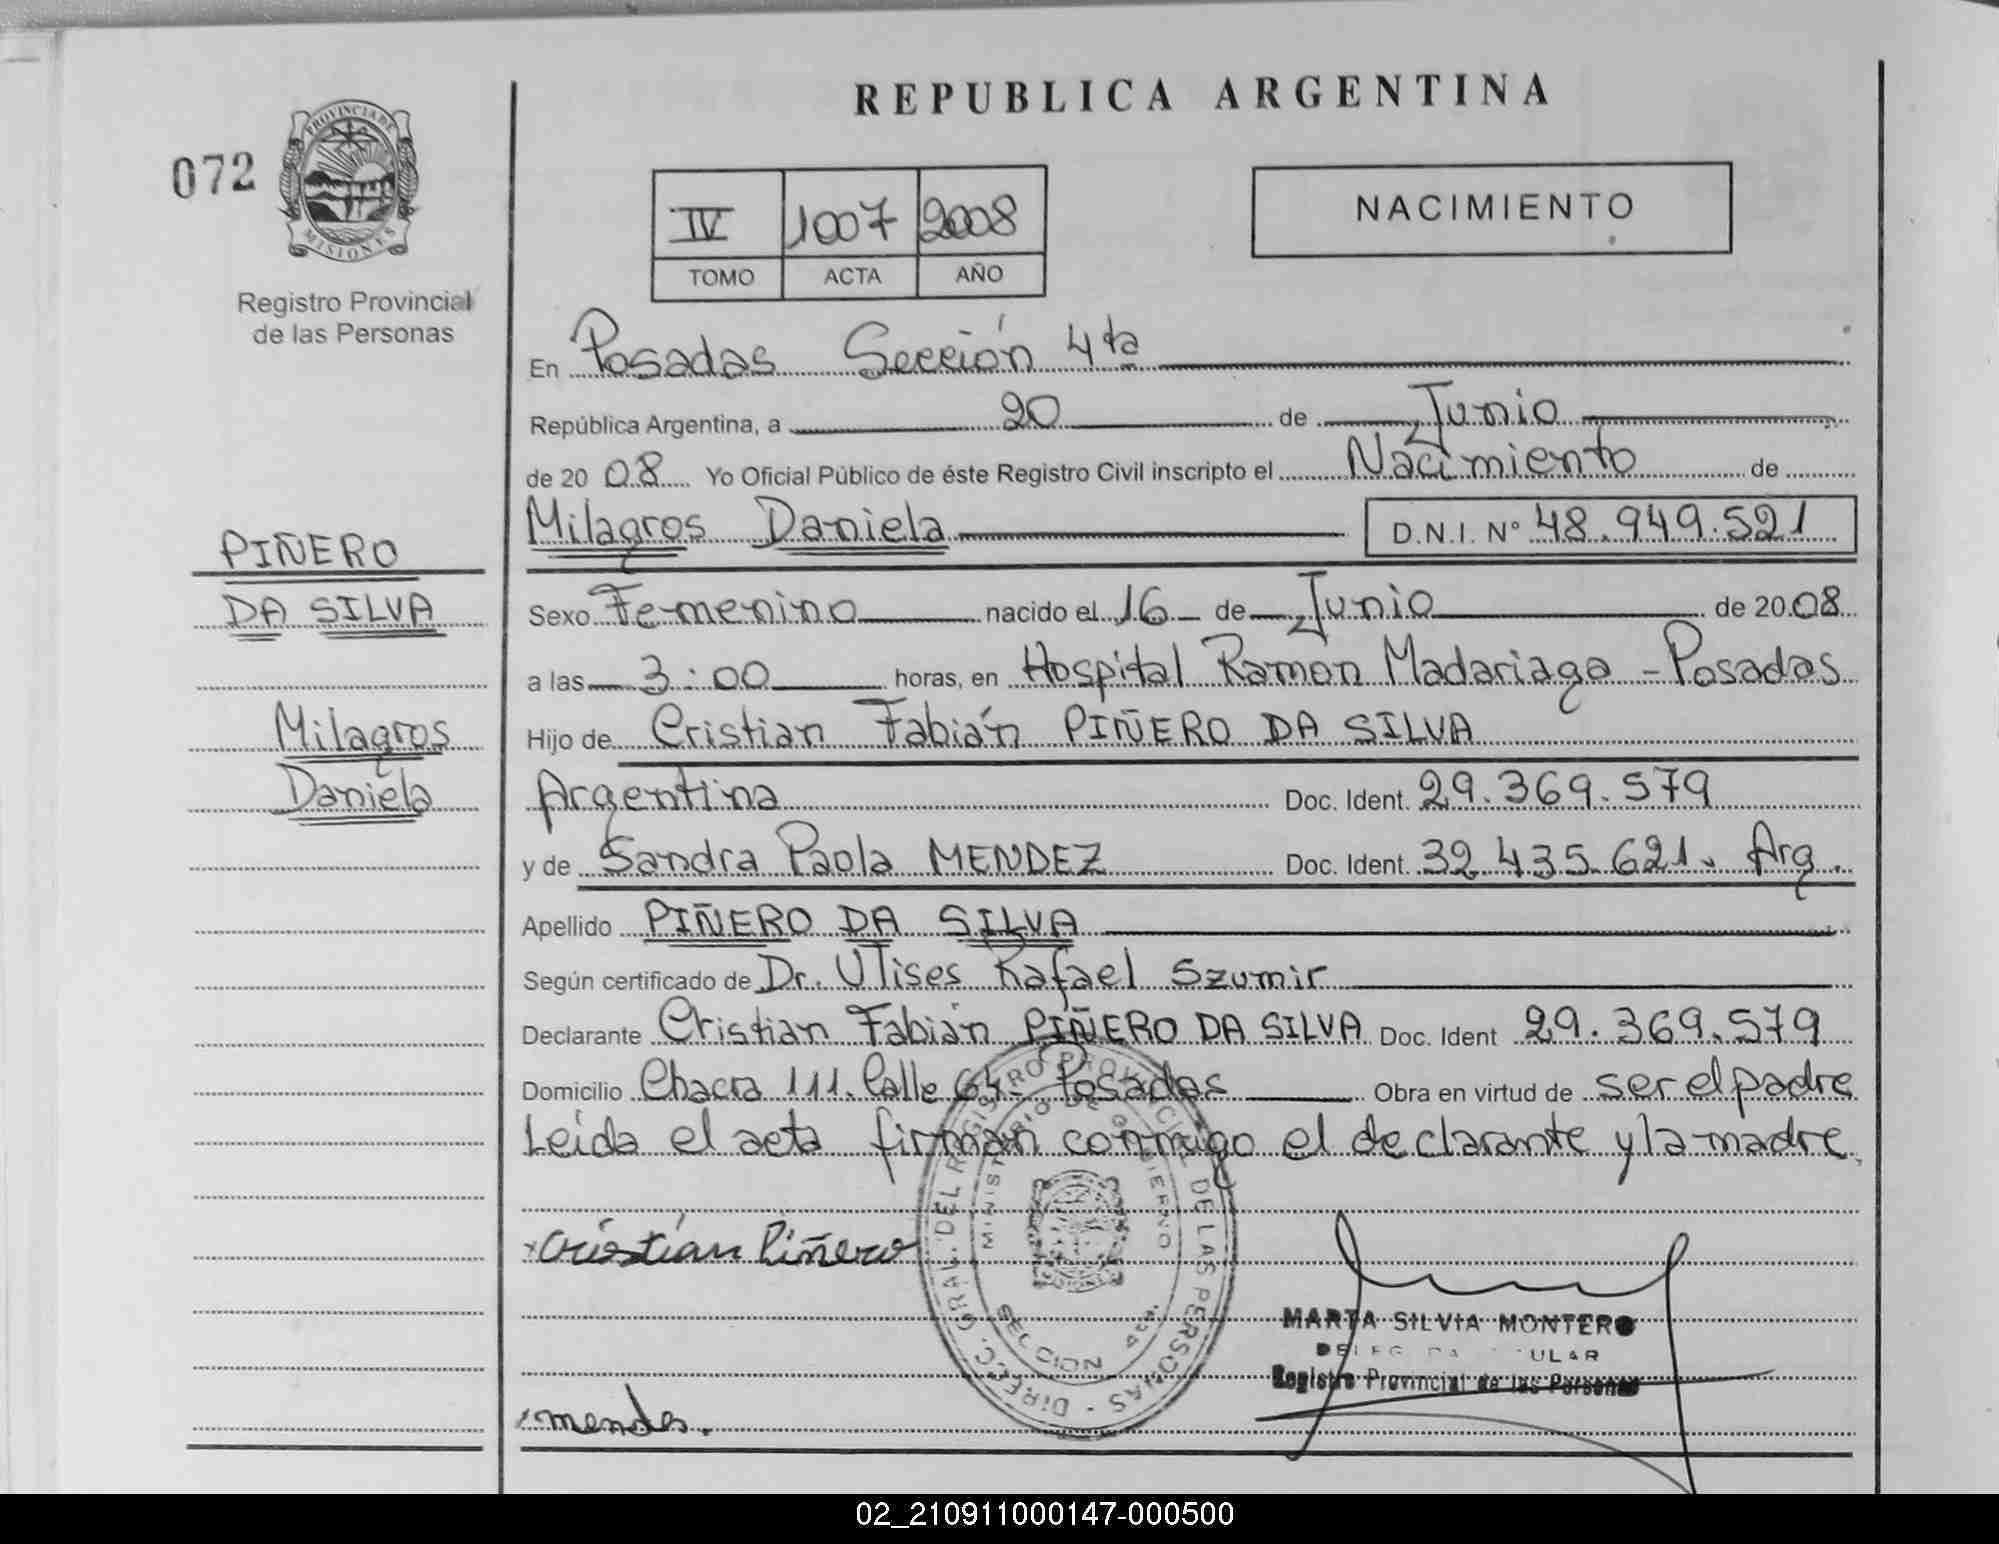 REPUBLICA ARGENTINA
072
PROVINCIA DE
MISIONES
Registro Provincial
de las Personas
IV 1007 2008
TOMO ACTA AÑO
NACIMIENTO
En Posadas Sección 4ta
República Argentina, a 20 de Junio
de 20 08 Yo Oficial Público de éste Registro Civil inscripto el Nacimiento de
Milagros Daniela D.N.I. Nº 48.949.521
PIÑERO
DA SILVA
Milagros
Daniela
Sexo Femenino nacido el 16 de Junio de 20 08
a las 3:00 horas, en Hospital Ramon Madariaga - Posadas
Hijo de Cristian Fabián PIÑERO DA SILVA
Argentina Doc. Ident. 29.369.579
y de Sandra Paola MENDEZ Doc. Ident. 32.435.621. Arg.
Apellido PIÑERO DA SILVA
Según certificado de Dr. Ulises Rafael Szumir
Declarante Cristian Fabián PIÑERO DA SILVA Doc. Ident 29.369.579
Domicilio Chacra 111. Calle 64- Posadas Obra en virtud de ser el padre
Leida el acta firman conmigo el declarante y la madre.
DIREC. GRAL. DEL REGISTRO PROVINCIAL DE LAS PERSONAS -
MINISTERIO DE GOBIERNO
SECCION 4ta.
Cristian Piñero
MARTA SILVIA MONTERO
Registro Provincial de las Personas
mendes.
02_210911000147-000500